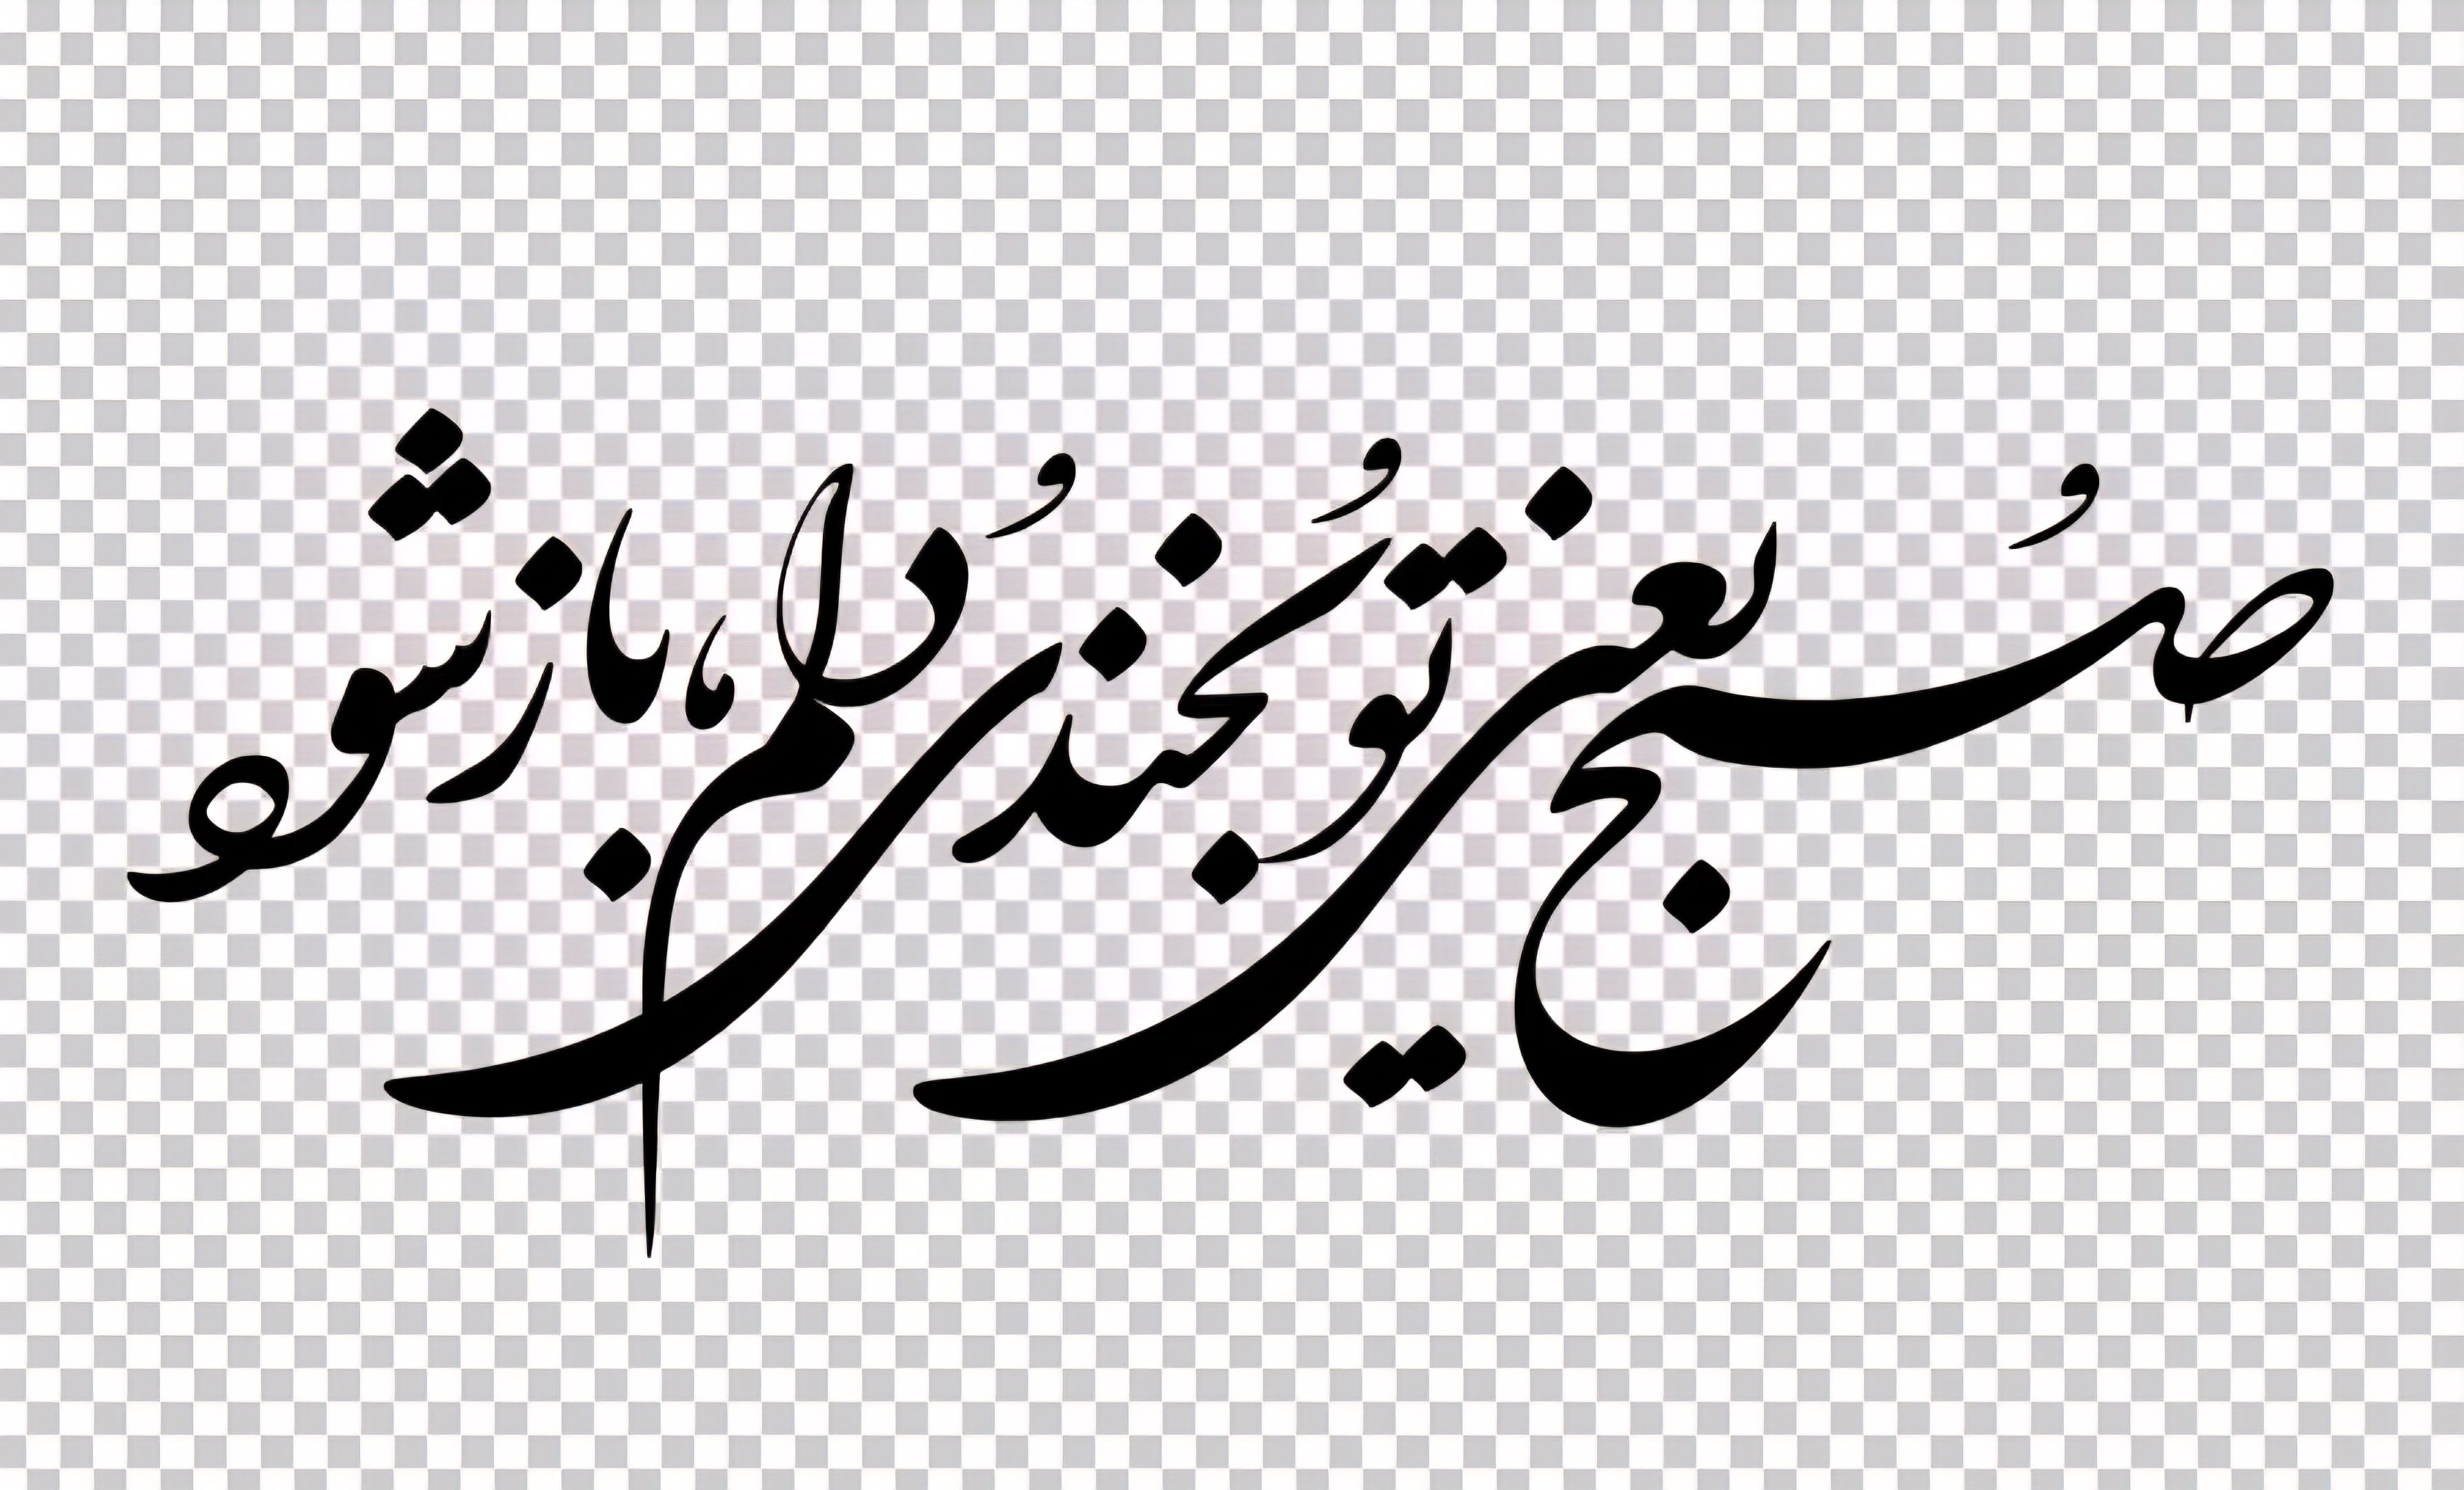 صبح یعنی تو بخندی دلم باز شود